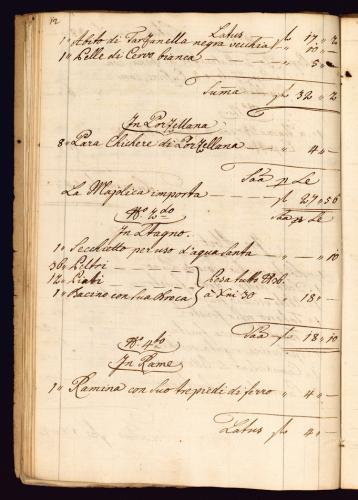 12
Latus fl 17 „ 2
1 „ Abito di Tarzanella negra vecchia „ 10 „ —
1 „ Pelle di Cervo bianca — — „ 5 „ —
Suma — fl 32 „ 2
In Porzellana
8 „ Para Chichere di Porzellana — „ 4 „ —
Sãa p Se
La Majolica importa — fl 27 „ 56
Nº 3do Sãa p Se
In Stagno.
1 „ Secchietto per uso d'aqua Santa — „ — „ 10
36 „ Peltri
12 „ Piati Pesa tutto 36.
1 „ Bacino con Sua Broca à Xni 30 — „ 18 „ —
Sãa — fl 18 „ 10
Nº 4to
In Rame
1 „ Ramina con Suo trepiedi di ferro „ 4 „ —
Latus fl 4 „ —